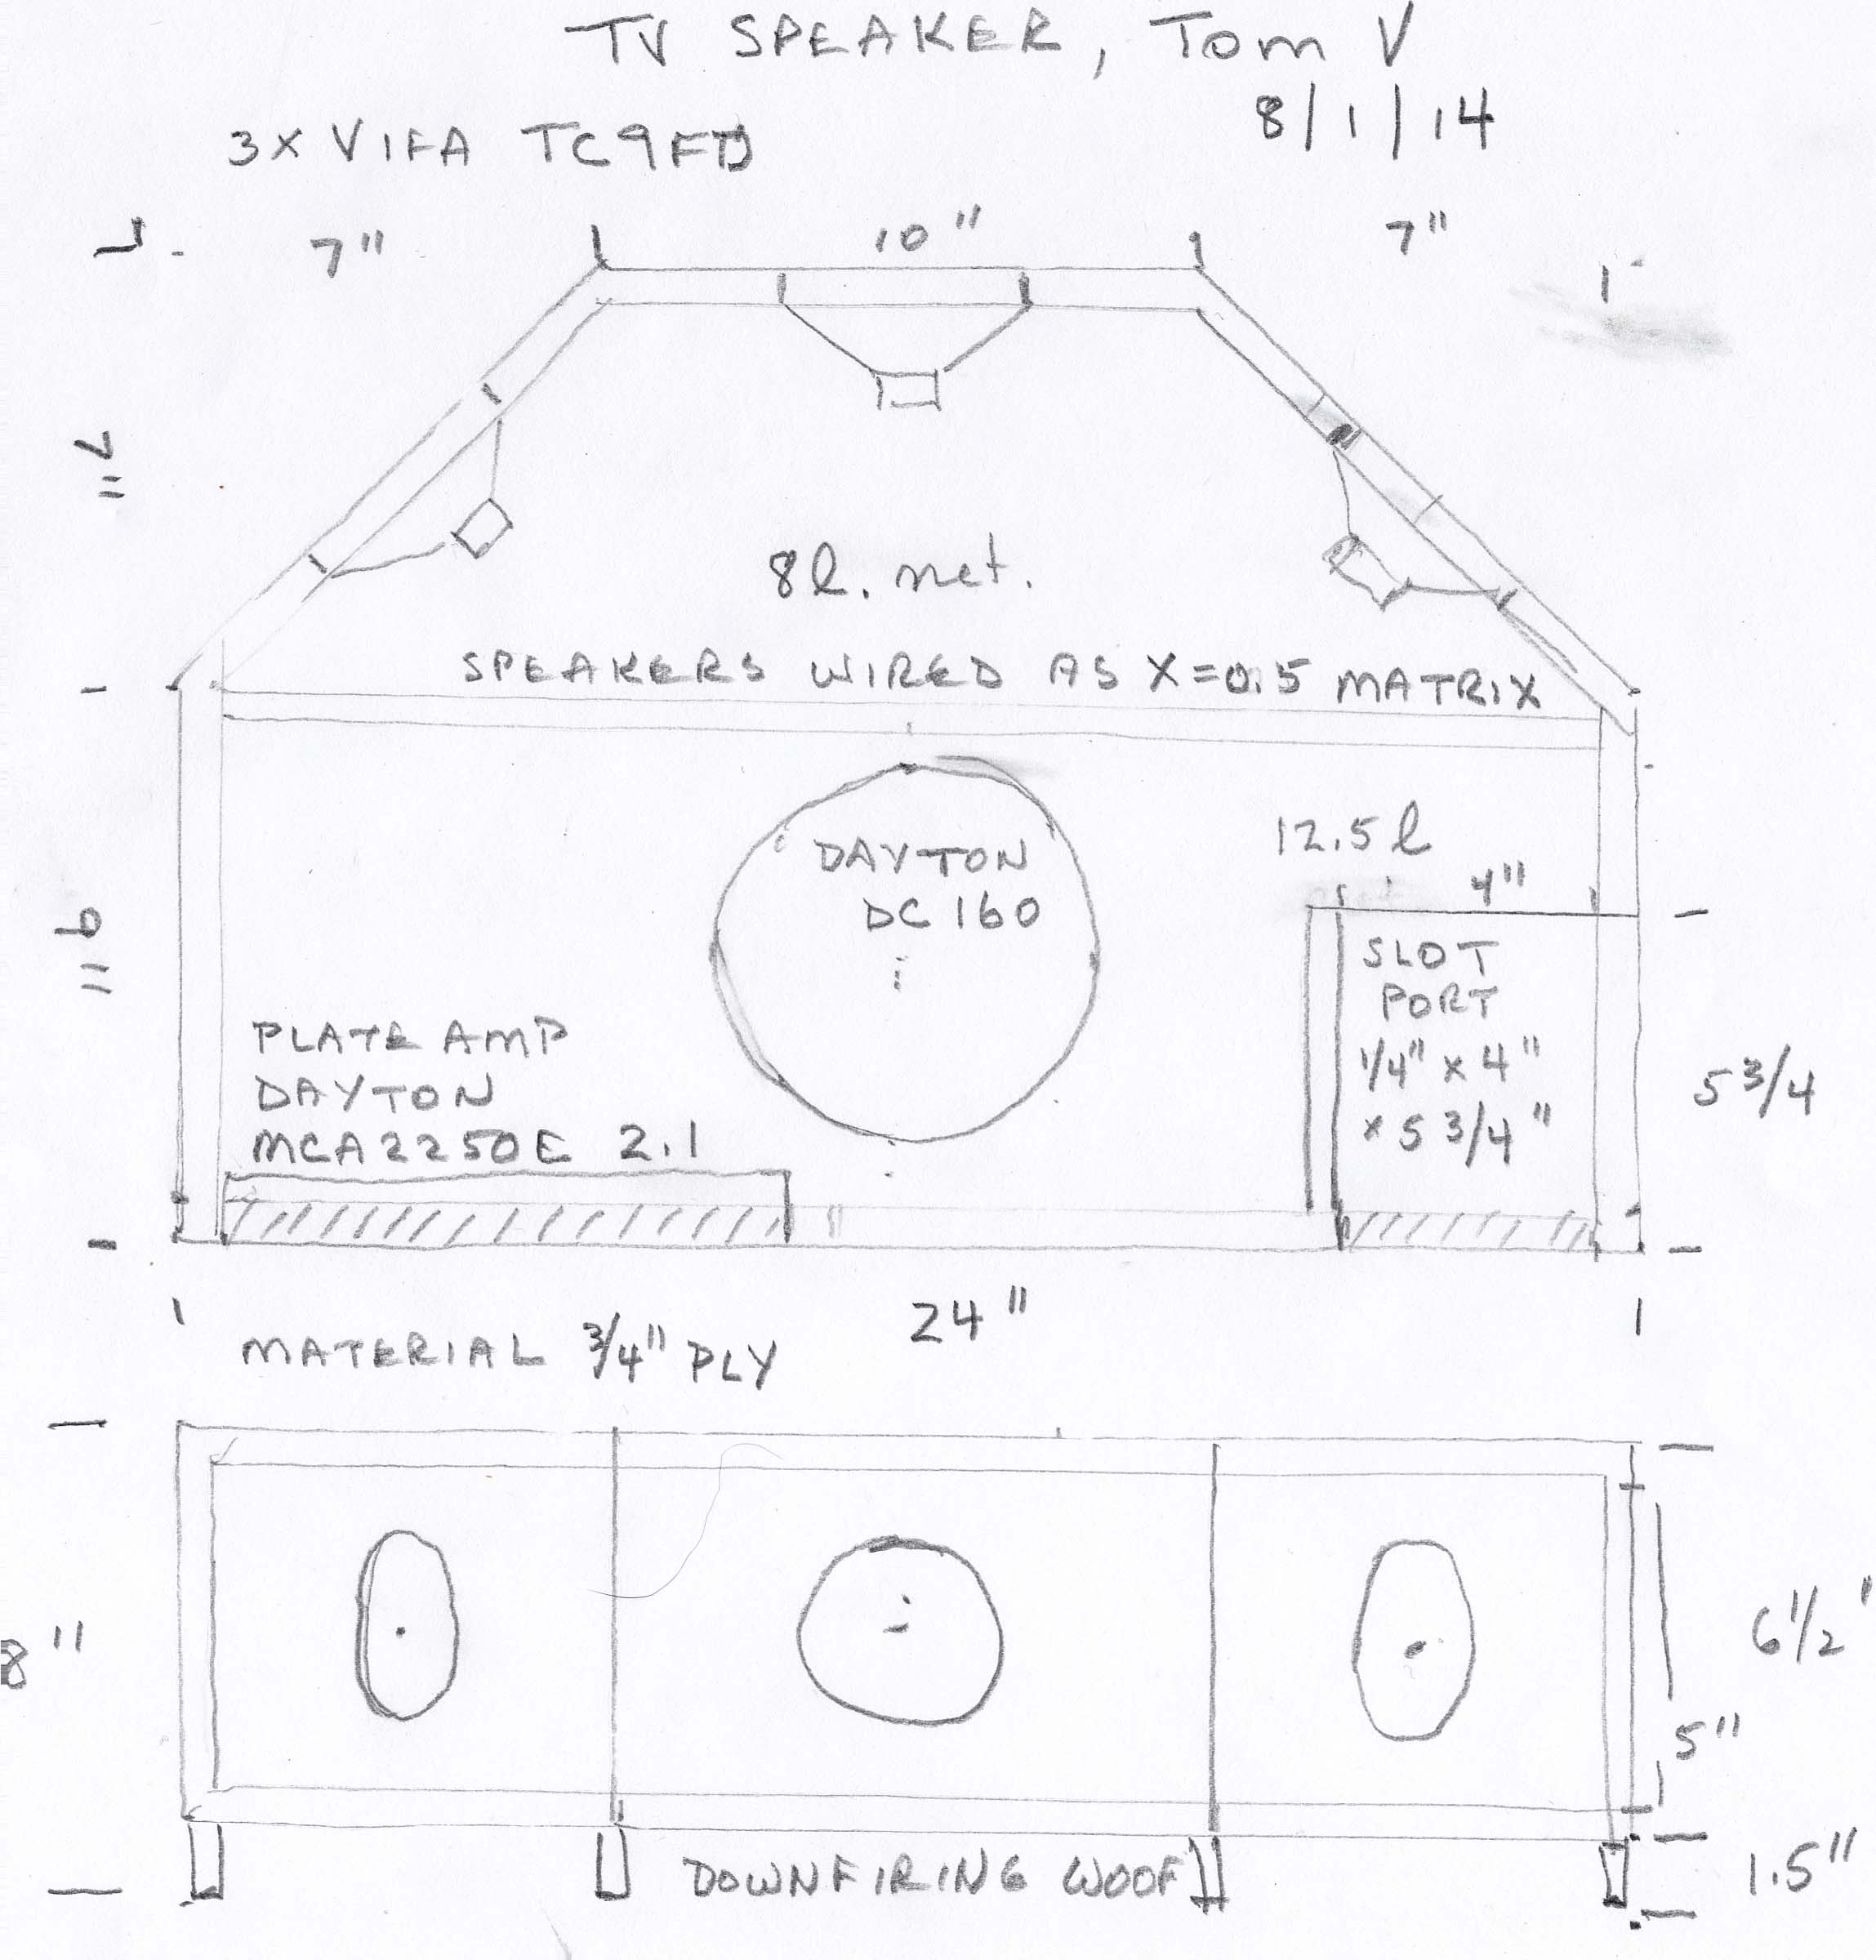 TV SPEAKER, Tom V
8/1/14
3X VIFA TC9FD
7" 10" 7"
7"
8l. net.
SPEAKERS WIRED AS X=0.5 MATRIX
DAYTON
DC160
12.5 l
4"
9"
SLOT
PORT
1/4" x 4"
x 5 3/4"
5 3/4
PLATE AMP
DAYTON
MCA2250E 2.1
24"
MATERIAL 3/4" PLY
8"
6 1/2"
5"
DOWNFIRING WOOF
1.5"